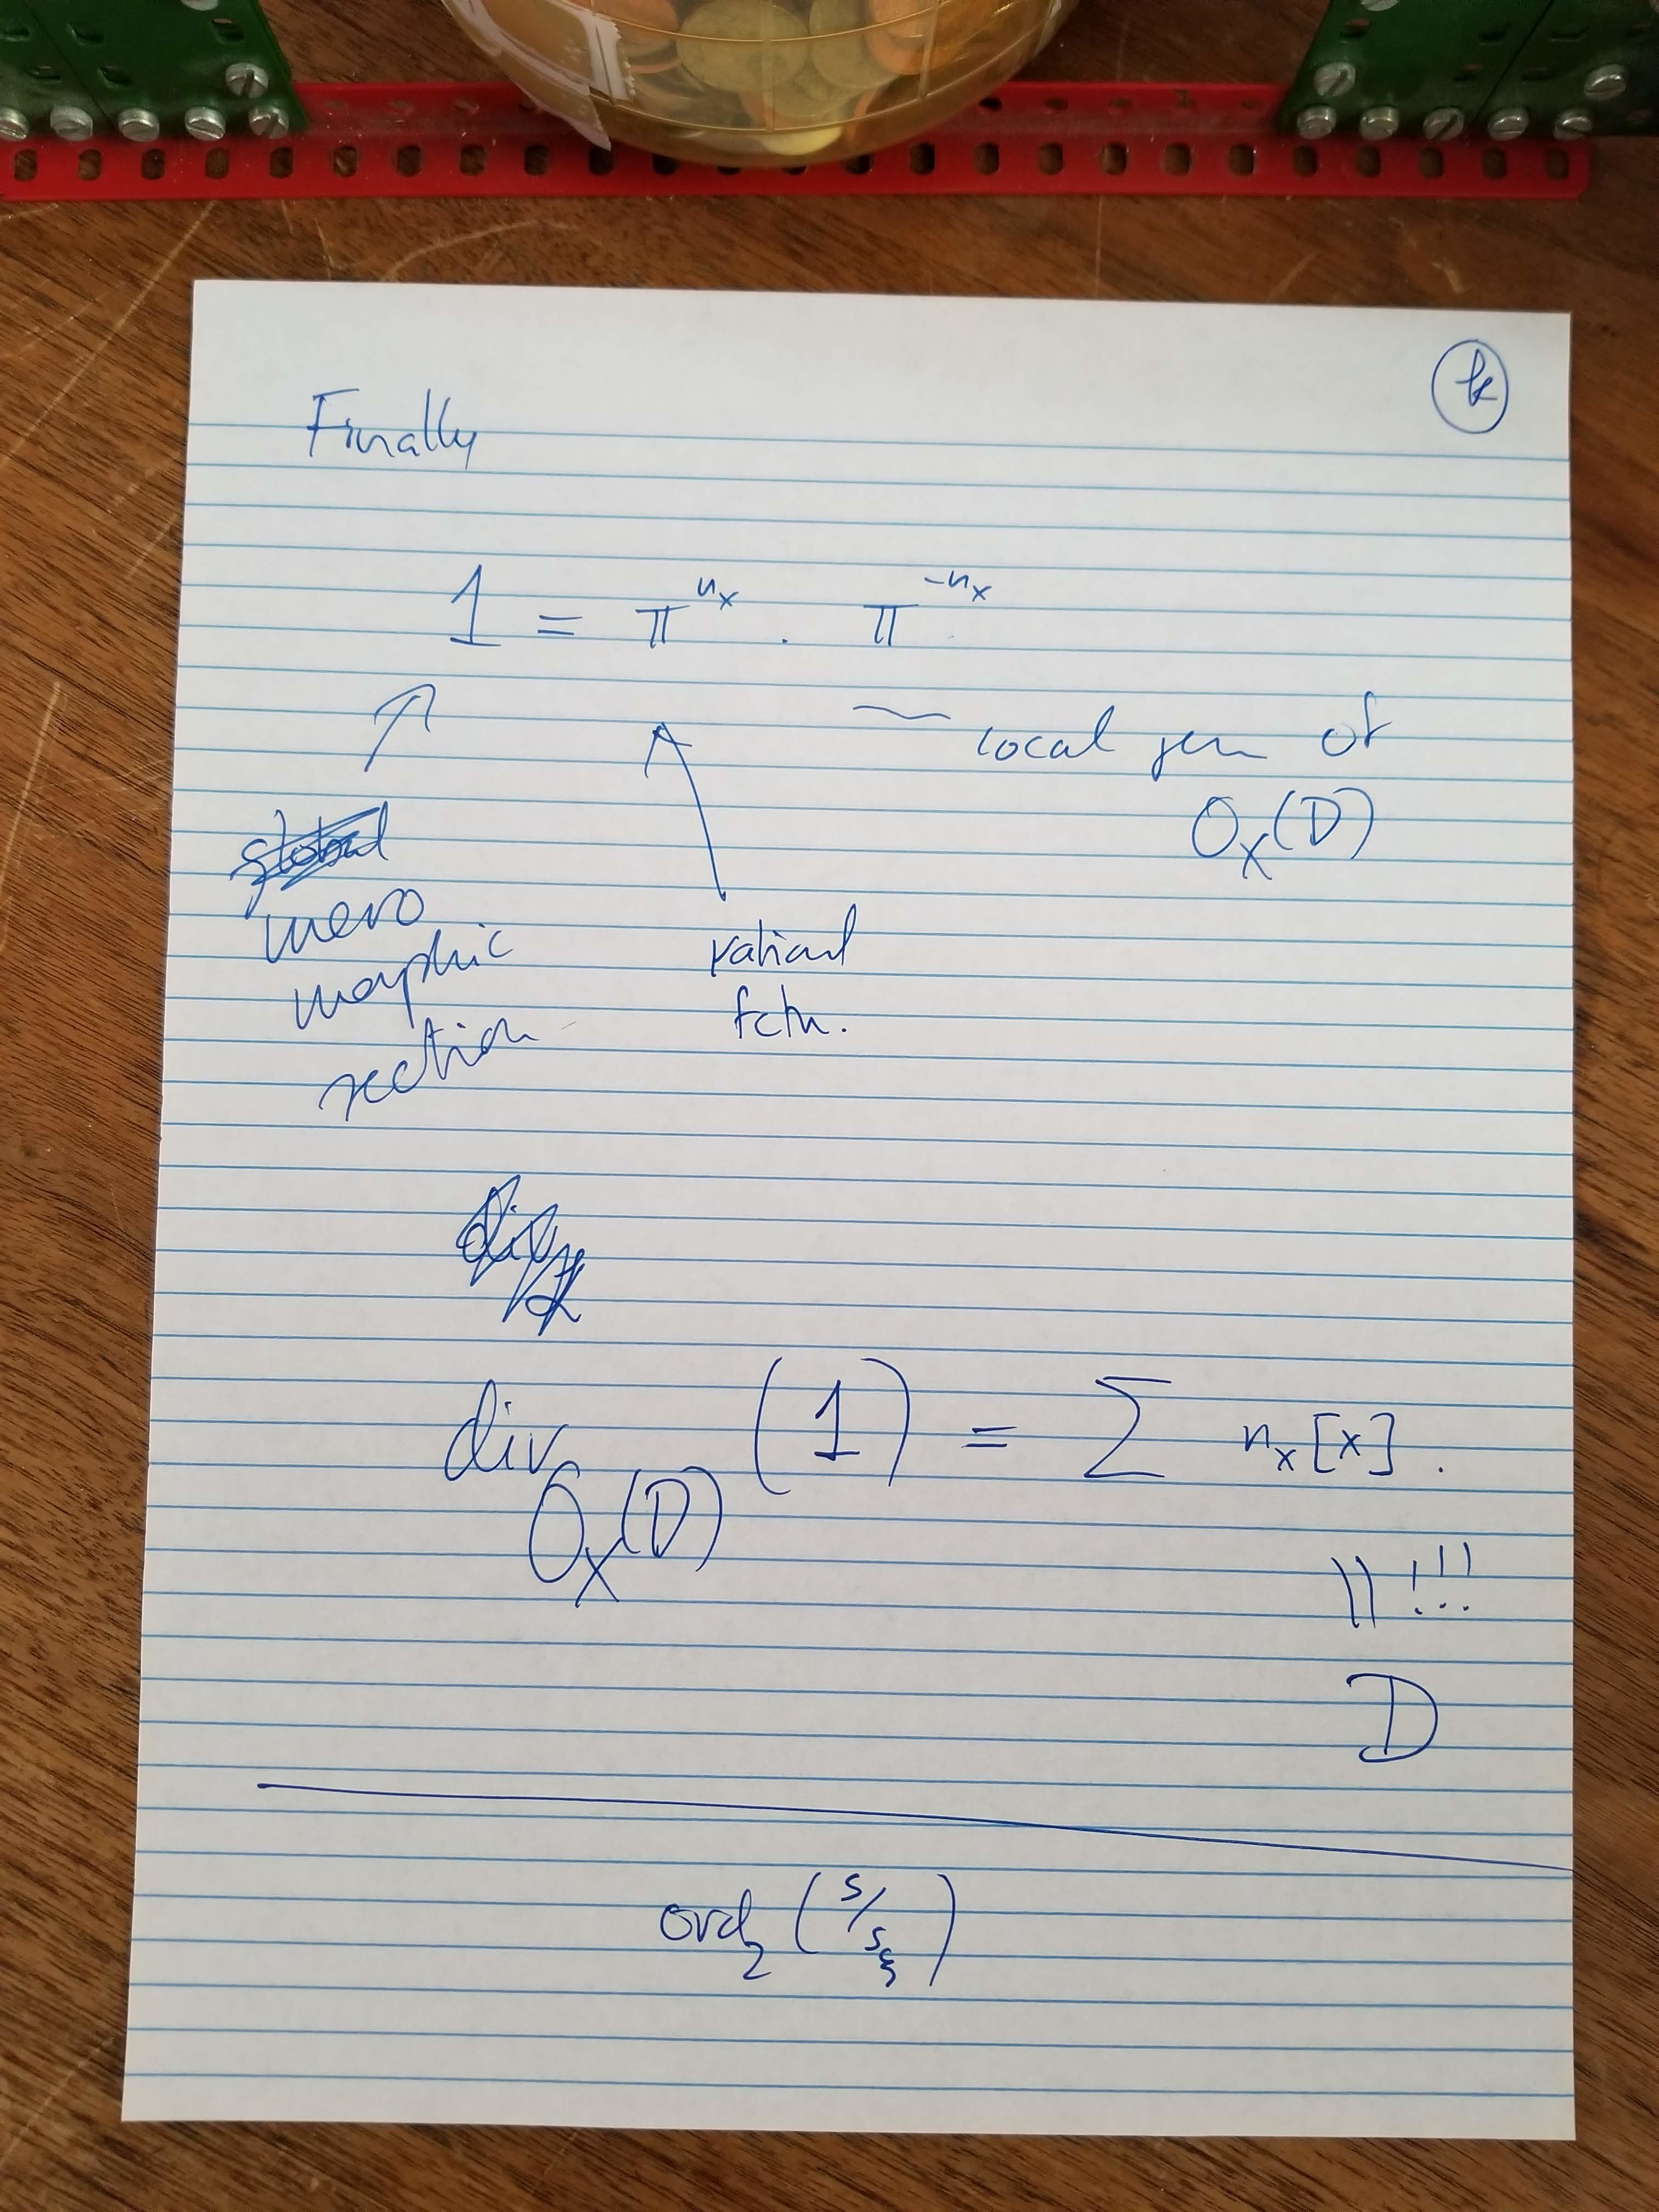 k
Finally
1 = π^{n_x} · π^{-n_x}
local gen of
O_X(D)
global
mero
morphic
section
rational
fctn.
div_L
div_{O_X(D)} (1) = Σ n_x [x].
|| !!!
D
ord_z (s/s_ξ)